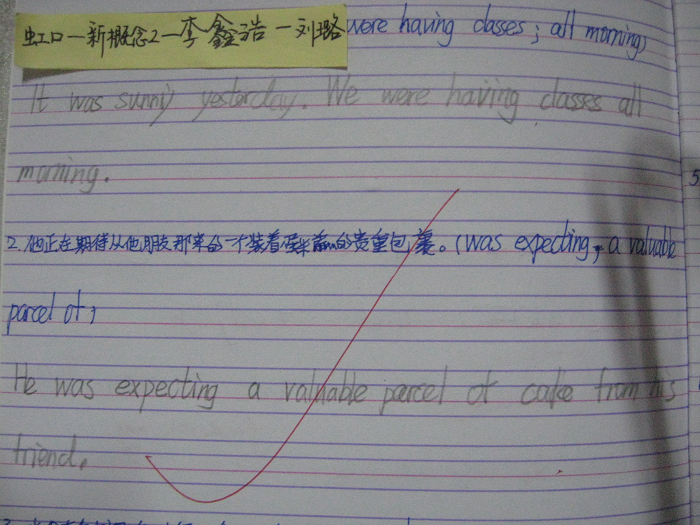 虹口—新概念2—李鑫浩—刘璐 were having classes; all morning)
It was sunny yesterday. We were having classes all
morning.
5
2. 他正在期待从他朋友那来的一个装着蛋糕的贵重包裹。(was expecting, a valuable
parcel of)
He was expecting a valuable parcel of cake from his
friend.